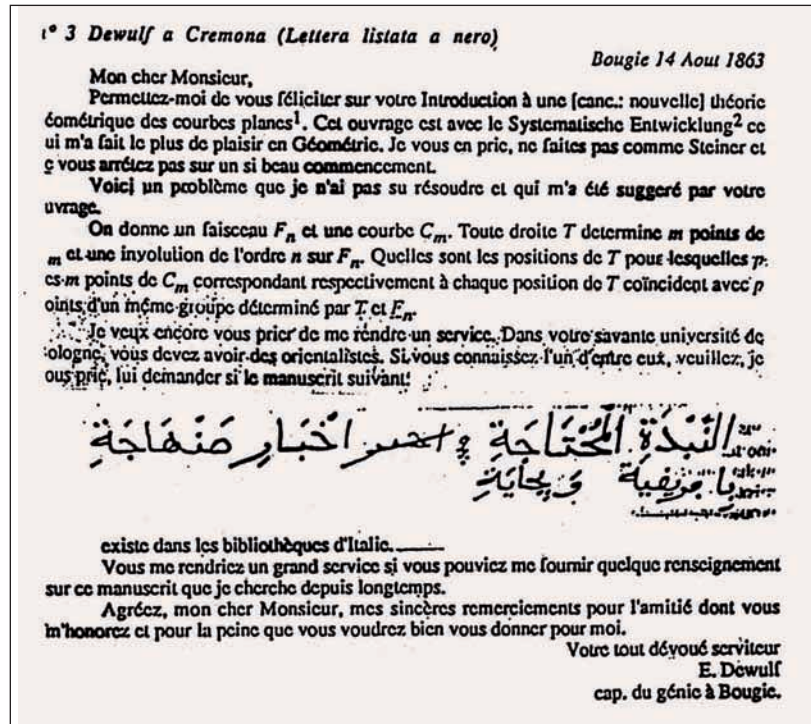 º 3 Dewulf a Cremona (Lettera listata a nero)
Bougie 14 Aout 1863
Mon cher Monsieur,
Permettez-moi de vous féliciter sur votre Introduction à une [canc.: nouvelle] théorie
éométrique des courbes planes¹. Cet ouvrage est avec le Systematische Entwicklung² ce
ui m'a fait le plus de plaisir en Géométrie. Je vous en prie, ne faites pas comme Steiner et
e vous arrêtez pas sur un si beau commencement.
Voici un problème que je n'ai pas su résoudre et qui m'a été suggeré par votre
uvrage.
On donne un faisceau Fn et une courbe Cm. Toute droite T determine m points de
m et une involution de l'ordre n sur Fn. Quelles sont les positions de T pour lesquelles p
es m points de Cm correspondant respectivement à chaque position de T coïncident avec p
oints d'un même groupe déterminé par T et Fn.
Je veux encore vous prier de me rendre un service. Dans votre savante université de
ologne, vous devez avoir des orientalistes. Si vous connaissez l'un d'entre eux, veuillez, je
ous prie, lui demander si le manuscrit suivant:
النَّبْدَةِ الْمُحْتَاجَةِ اخْبَارِ صَنْهَاجَةِ
بِا فريفية وَ بِجايَةِ
existe dans les bibliothèques d'Italie.
Vous me rendriez un grand service si vous pouviez me fournir quelque renseignement
sur ce manuscrit que je cherche depuis longtemps.
Agréez, mon cher Monsieur, mes sincères remerciements pour l'amitié dont vous
m'honorez et pour la peine que vous voudrez bien vous donner pour moi.
Votre tout dévoué serviteur
E. Dewulf
cap. du génie à Bougie.